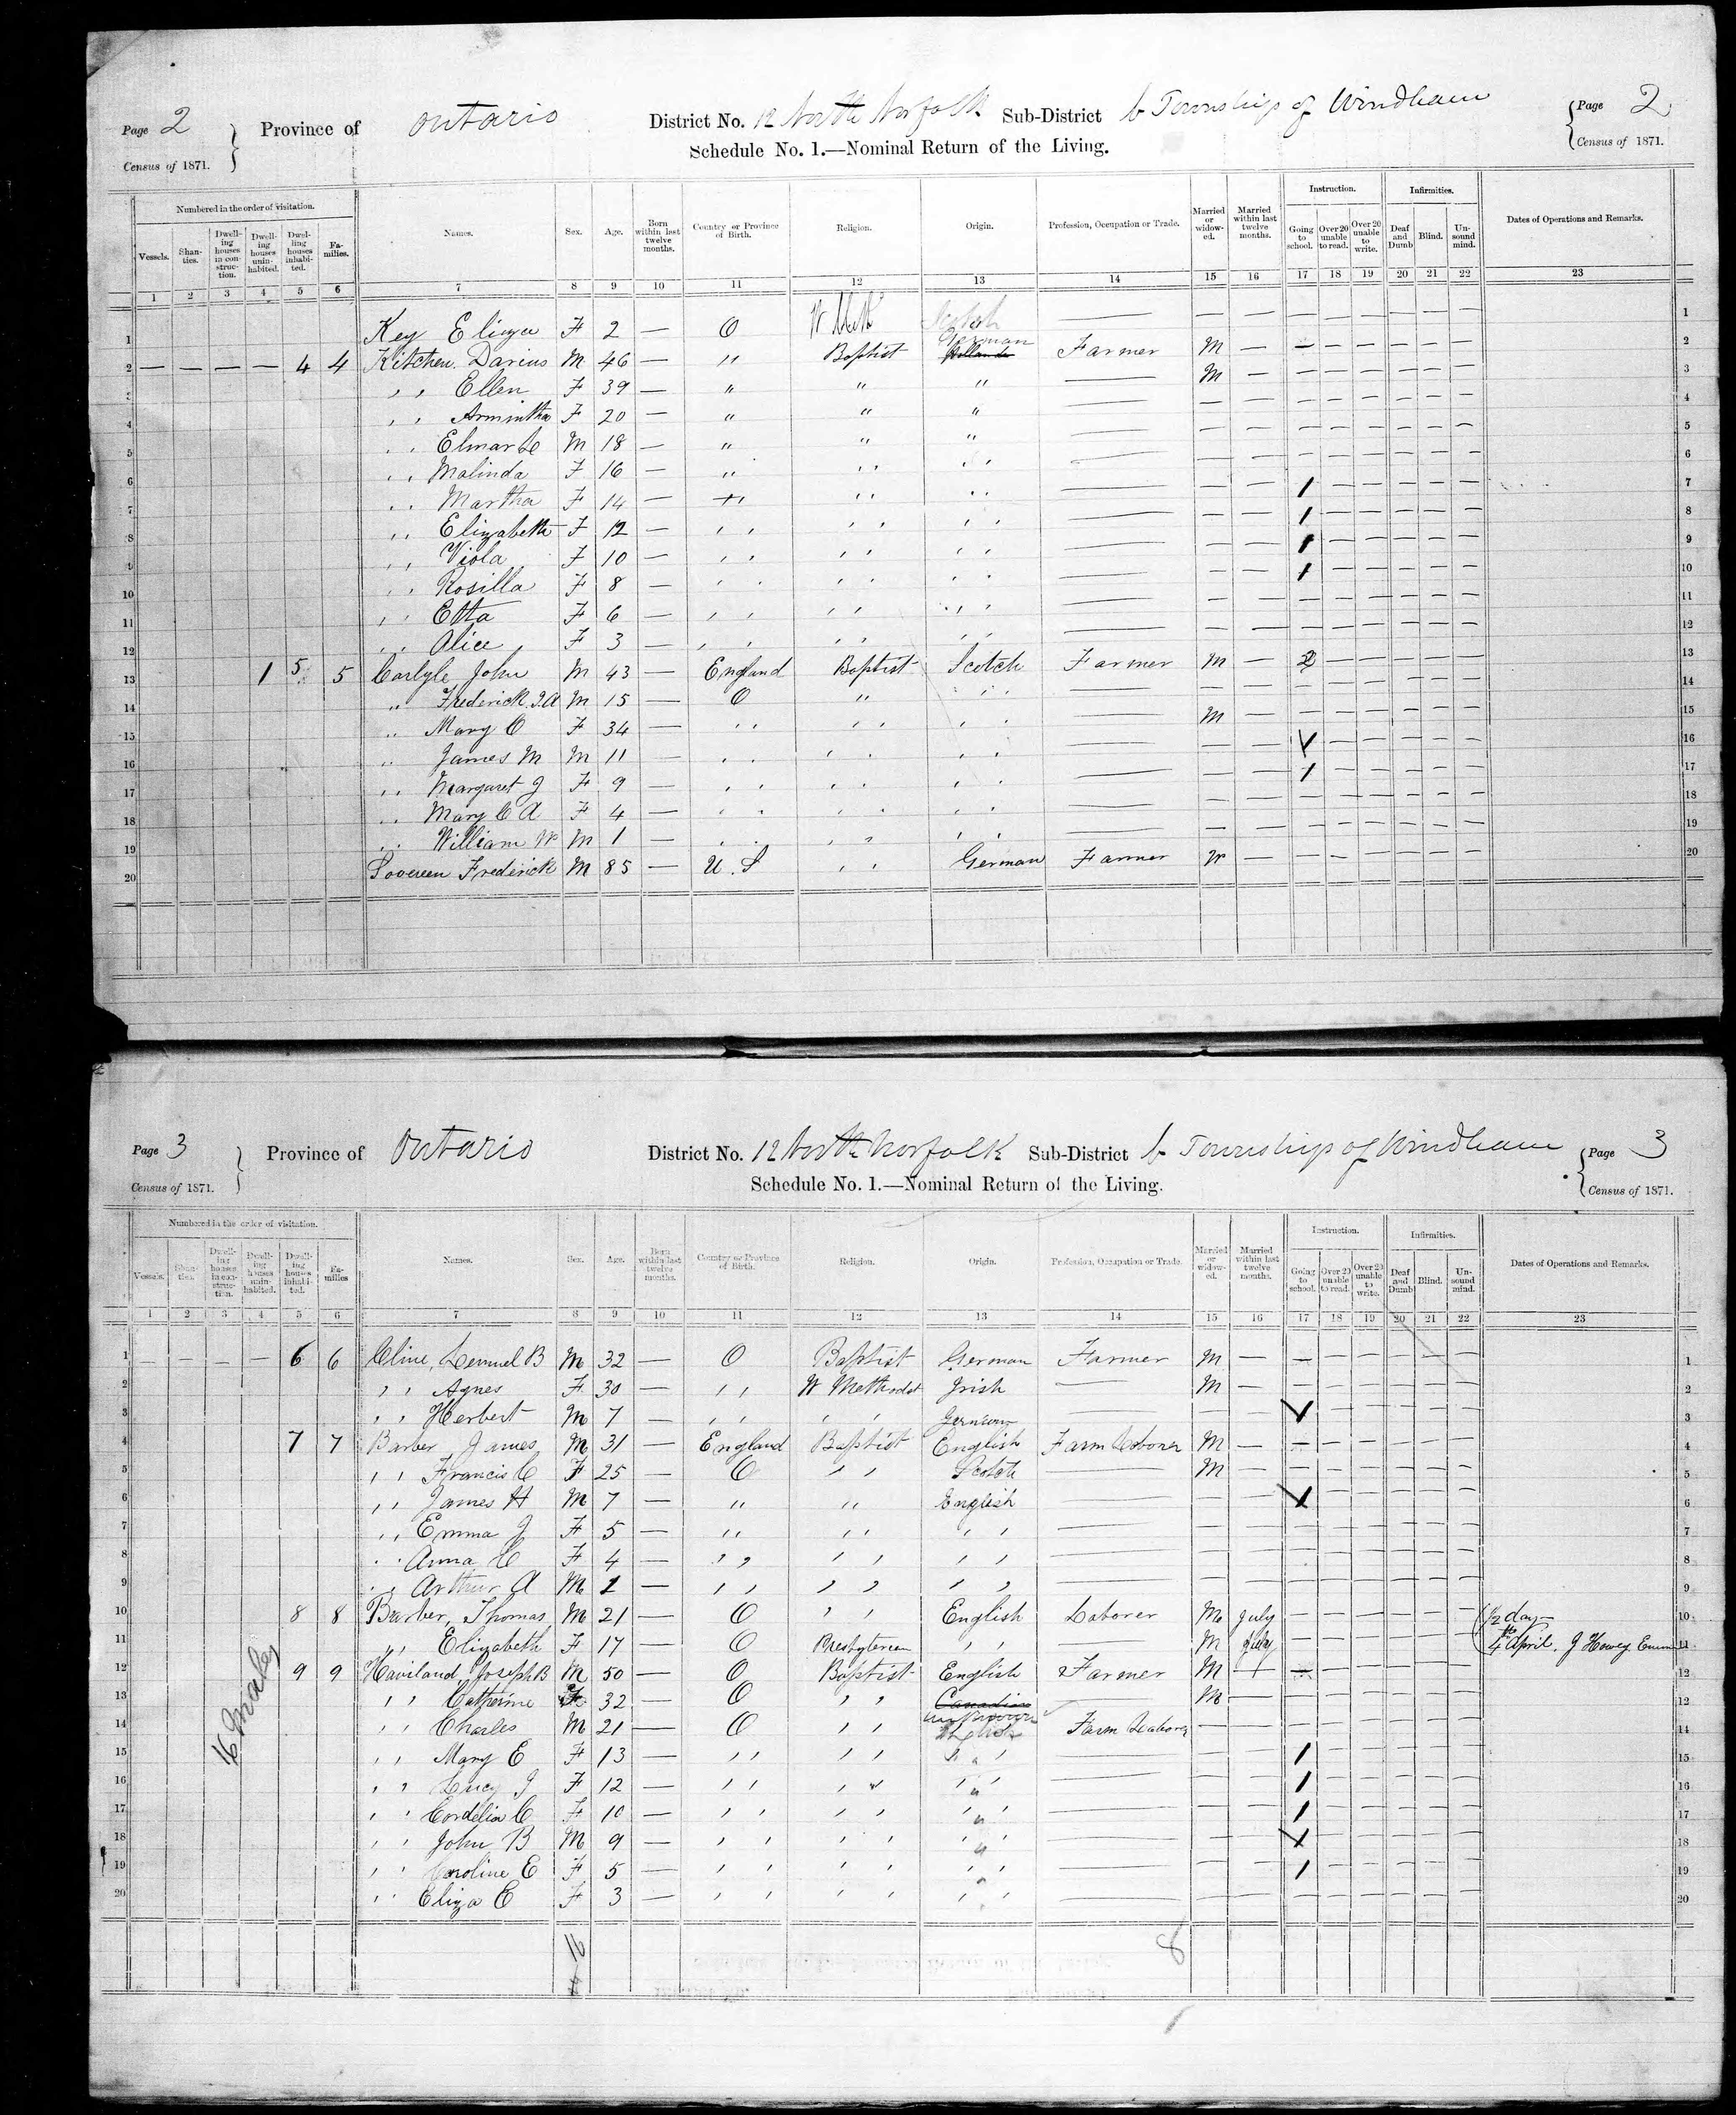 Page 2 Province of Ontario District No. 12 North Norfolk Sub-District b Township of Windham Page 2
Census of 1871. Schedule No. 1.—Nominal Return of the Living. Census of 1871.
Numbered in the order of visitation. Instruction. Infirmities.
Vessels. Shanties. Dwelling houses in construction. Dwelling houses uninhabited. Dwelling houses inhabited. Families. Names. Sex. Age. Born within last twelve months. Country or Province of Birth. Religion. Origin. Profession, Occupation or Trade. Married or widowed. Married within last twelve months. Going to school. Over 20 unable to read. Over 20 unable to write. Deaf and Dumb Blind. Unsound mind. Dates of Operations and Remarks.
1 2 3 4 5 6 7 8 9 10 11 12 13 14 15 16 17 18 19 20 21 22 23
1 Key Eliza F 2 — O W Meth Scotch — — — — — — — — — 1
2 — — — — 4 4 Kitchen Darius M 46 — " Baptist German Hollander Farmer M — — — — — — — 2
3 " Ellen F 39 — " " " — M — — — — — — — 3
4 " Armintha F 20 — " " " — — — — — — — — — 4
5 " Elmar M 18 — " " " — — — — — — — — — 5
6 " Malinda F 16 — " " " — — — — — — — — — 6
7 " Martha F 14 — " " " — — — 1 — — — — — 7
8 " Elizabeth F 12 — " " " — — — 1 — — — — — 8
9 " Viola F 10 — " " " — — — 1 — — — — — 9
10 " Rosilla F 8 — " " " — — — 1 — — — — — 10
11 " Etta F 6 — " " " — — — — — — — — — 11
12 " Alice F 3 — " " " — — — — — — — — — 12
13 1 5 5 Carlyle John M 43 — England Baptist Scotch Farmer M — 2 — — — — — 13
14 " Frederick J.A M 15 — O " " — — — — — — — — — 14
15 " Mary C F 34 — " " " — M — — — — — — — 15
16 " James M M 11 — " " " — — — 1 — — — — — 16
17 " Margaret J F 9 — " " " — — — 1 — — — — — 17
18 " Mary C A F 4 — " " " — — — — — — — — — 18
19 " William W M 1 — " " " — — — — — — — — — 19
20 Sovereen Frederick M 85 — U.S " German Farmer W — — — — — — — 20
Page 3 Province of Ontario District No. 12 North Norfolk Sub-District b Township of Windham Page 3
Census of 1871. Schedule No. 1.—Nominal Return of the Living. Census of 1871.
Numbered in the order of visitation. Instruction. Infirmities.
Vessels. Shanties. Dwelling houses in construction. Dwelling houses uninhabited. Dwelling houses inhabited. Families Names. Sex. Age. Born within last twelve months. Country or Province of Birth. Religion. Origin. Profession, Occupation or Trade. Married or widowed. Married within last twelve months. Going to school. Over 20 unable to read. Over 20 unable to write. Deaf and Dumb Blind. Unsound mind. Dates of Operations and Remarks.
1 2 3 4 5 6 7 8 9 10 11 12 13 14 15 16 17 18 19 20 21 22 23
1 — — — — 6 6 Cline, Lemuel B M 32 — O Baptist German Farmer M — — — — — — — 1
2 " Agnes F 30 — " W Methodist Irish — M — — — — — — — 2
3 " Herbert M 7 — " " German — — — 1 — — — — — 3
4 7 7 Barber, James M 31 — England Baptist English Farm Laborer M — — — — — — — 4
5 " Francis C F 25 — O " Scotch — M — — — — — — — 5
6 " James H M 7 — " " English — — — 1 — — — — — 6
7 " Emma J F 5 — " " " — — — — — — — — — 7
8 " Anna C F 4 — " " " — — — — — — — — — 8
9 " Arthur A M 1 — " " " — — — — — — — — — 9
10 8 8 Barber, Thomas M 21 — O " English Laborer M July — — — — — — 1/2 day 10
11 " Elizabeth F 17 — O Presbyterian " — M July — — — — — — 4th April. J Howey Enum 11
12 9 9 Haviland, Joseph B M 50 — O Baptist English Farmer M — — — — — — — 12
13 " Catherine F 32 — O " Canadian unknown — M — — — — — — — 12
14 " Charles M 21 — O " English Farm Labourer — — — — — — — — 14
15 " Mary E F 13 — " " " — — — 1 — — — — — 15
16 " Lucy J F 12 — " " " — — — 1 — — — — — 16
17 " Cordelia C F 10 — " " " — — — 1 — — — — — 17
18 " John B M 9 — " " " — — — 1 — — — — — 18
19 " Caroline E F 5 — " " " — — — 1 — — — — — 19
20 " Eliza E F 3 — " " " — — — — — — — — — 20
16 Males
16
8